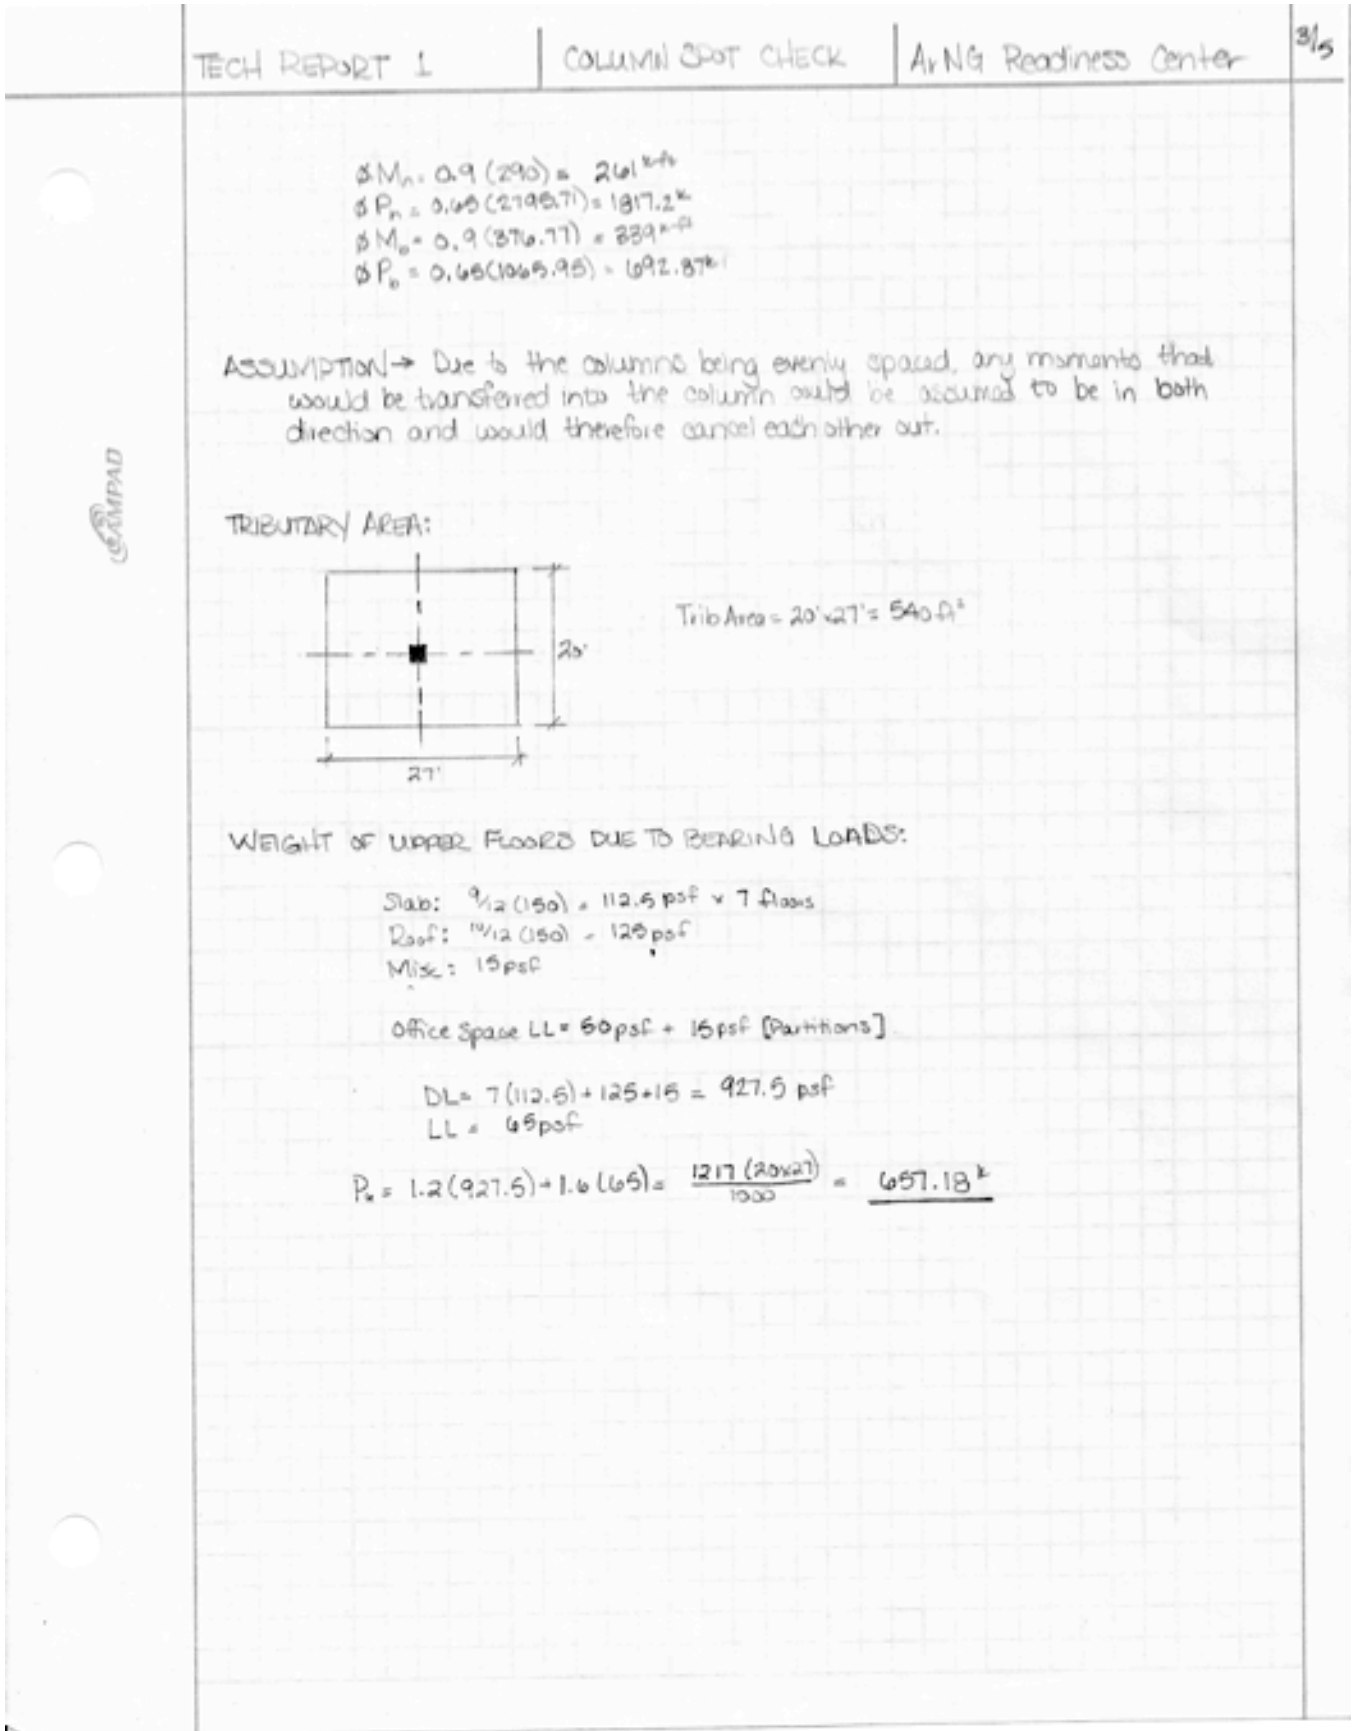 TECH REPORT 1
COLUMN SPOT CHECK
ArNG Readiness Center
3/5
ØMn = 0.9 (290) = 261 k-ft
ØPn = 0.65 (2795.71) = 1817.2 k
ØMb = 0.9 (376.77) = 339 k-ft
ØPb = 0.65 (1065.95) = 692.87 k
ASSUMPTION → Due to the columns being evenly spaced, any moments that
would be transferred into the column could be assumed to be in both
direction and would therefore cancel each other out.
CAMPAD
TRIBUTARY AREA:
Trib Area = 20' x 27' = 540 ft²
20'
27'
WEIGHT OF UPPER FLOORS DUE TO BEARING LOADS:
Slab: 9/12 (150) = 112.5 psf x 7 floors
Roof: 10/12 (150) = 125 psf
Misc: 15 psf
Office Space LL = 50 psf + 15 psf [Partitions]
DL = 7 (112.5) + 125 + 15 = 927.5 psf
LL = 65 psf
Pu = 1.2 (927.5) + 1.6 (65) = 1217 (20x27) / 1000 = 657.18 k